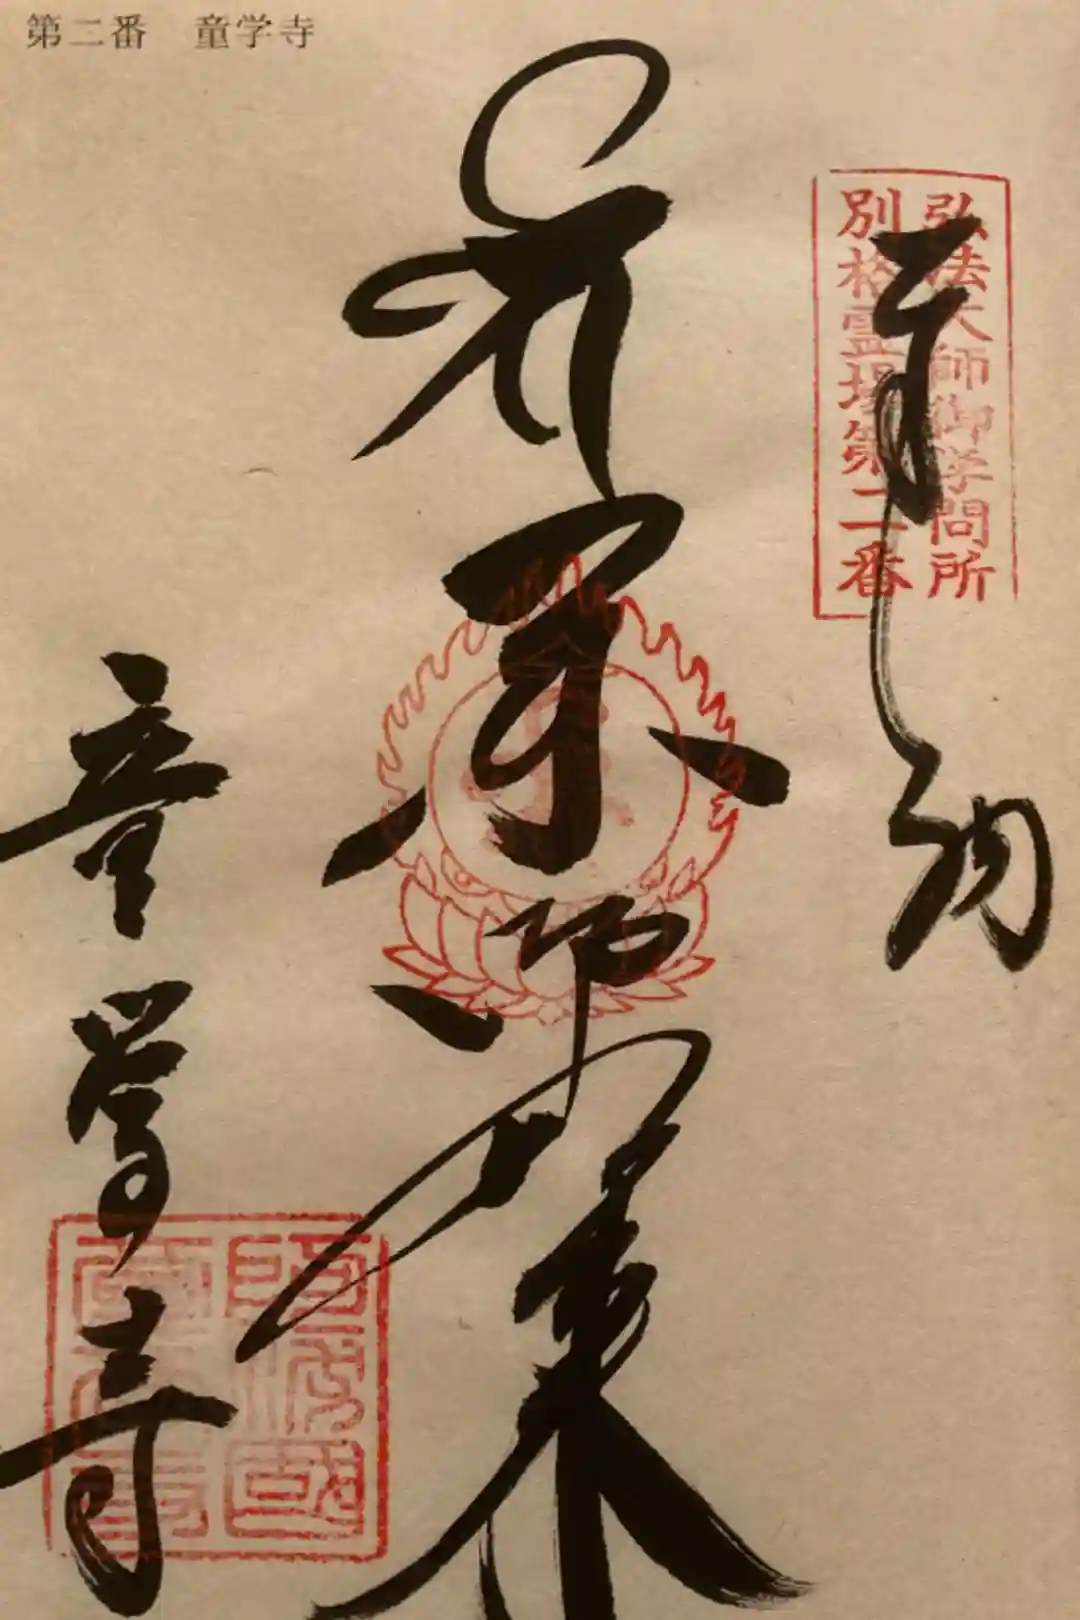 第二番　童学寺
弘法大師御学問所
別格霊場第二番
奉納
薬師如来
童学寺
阿波國
童学寺